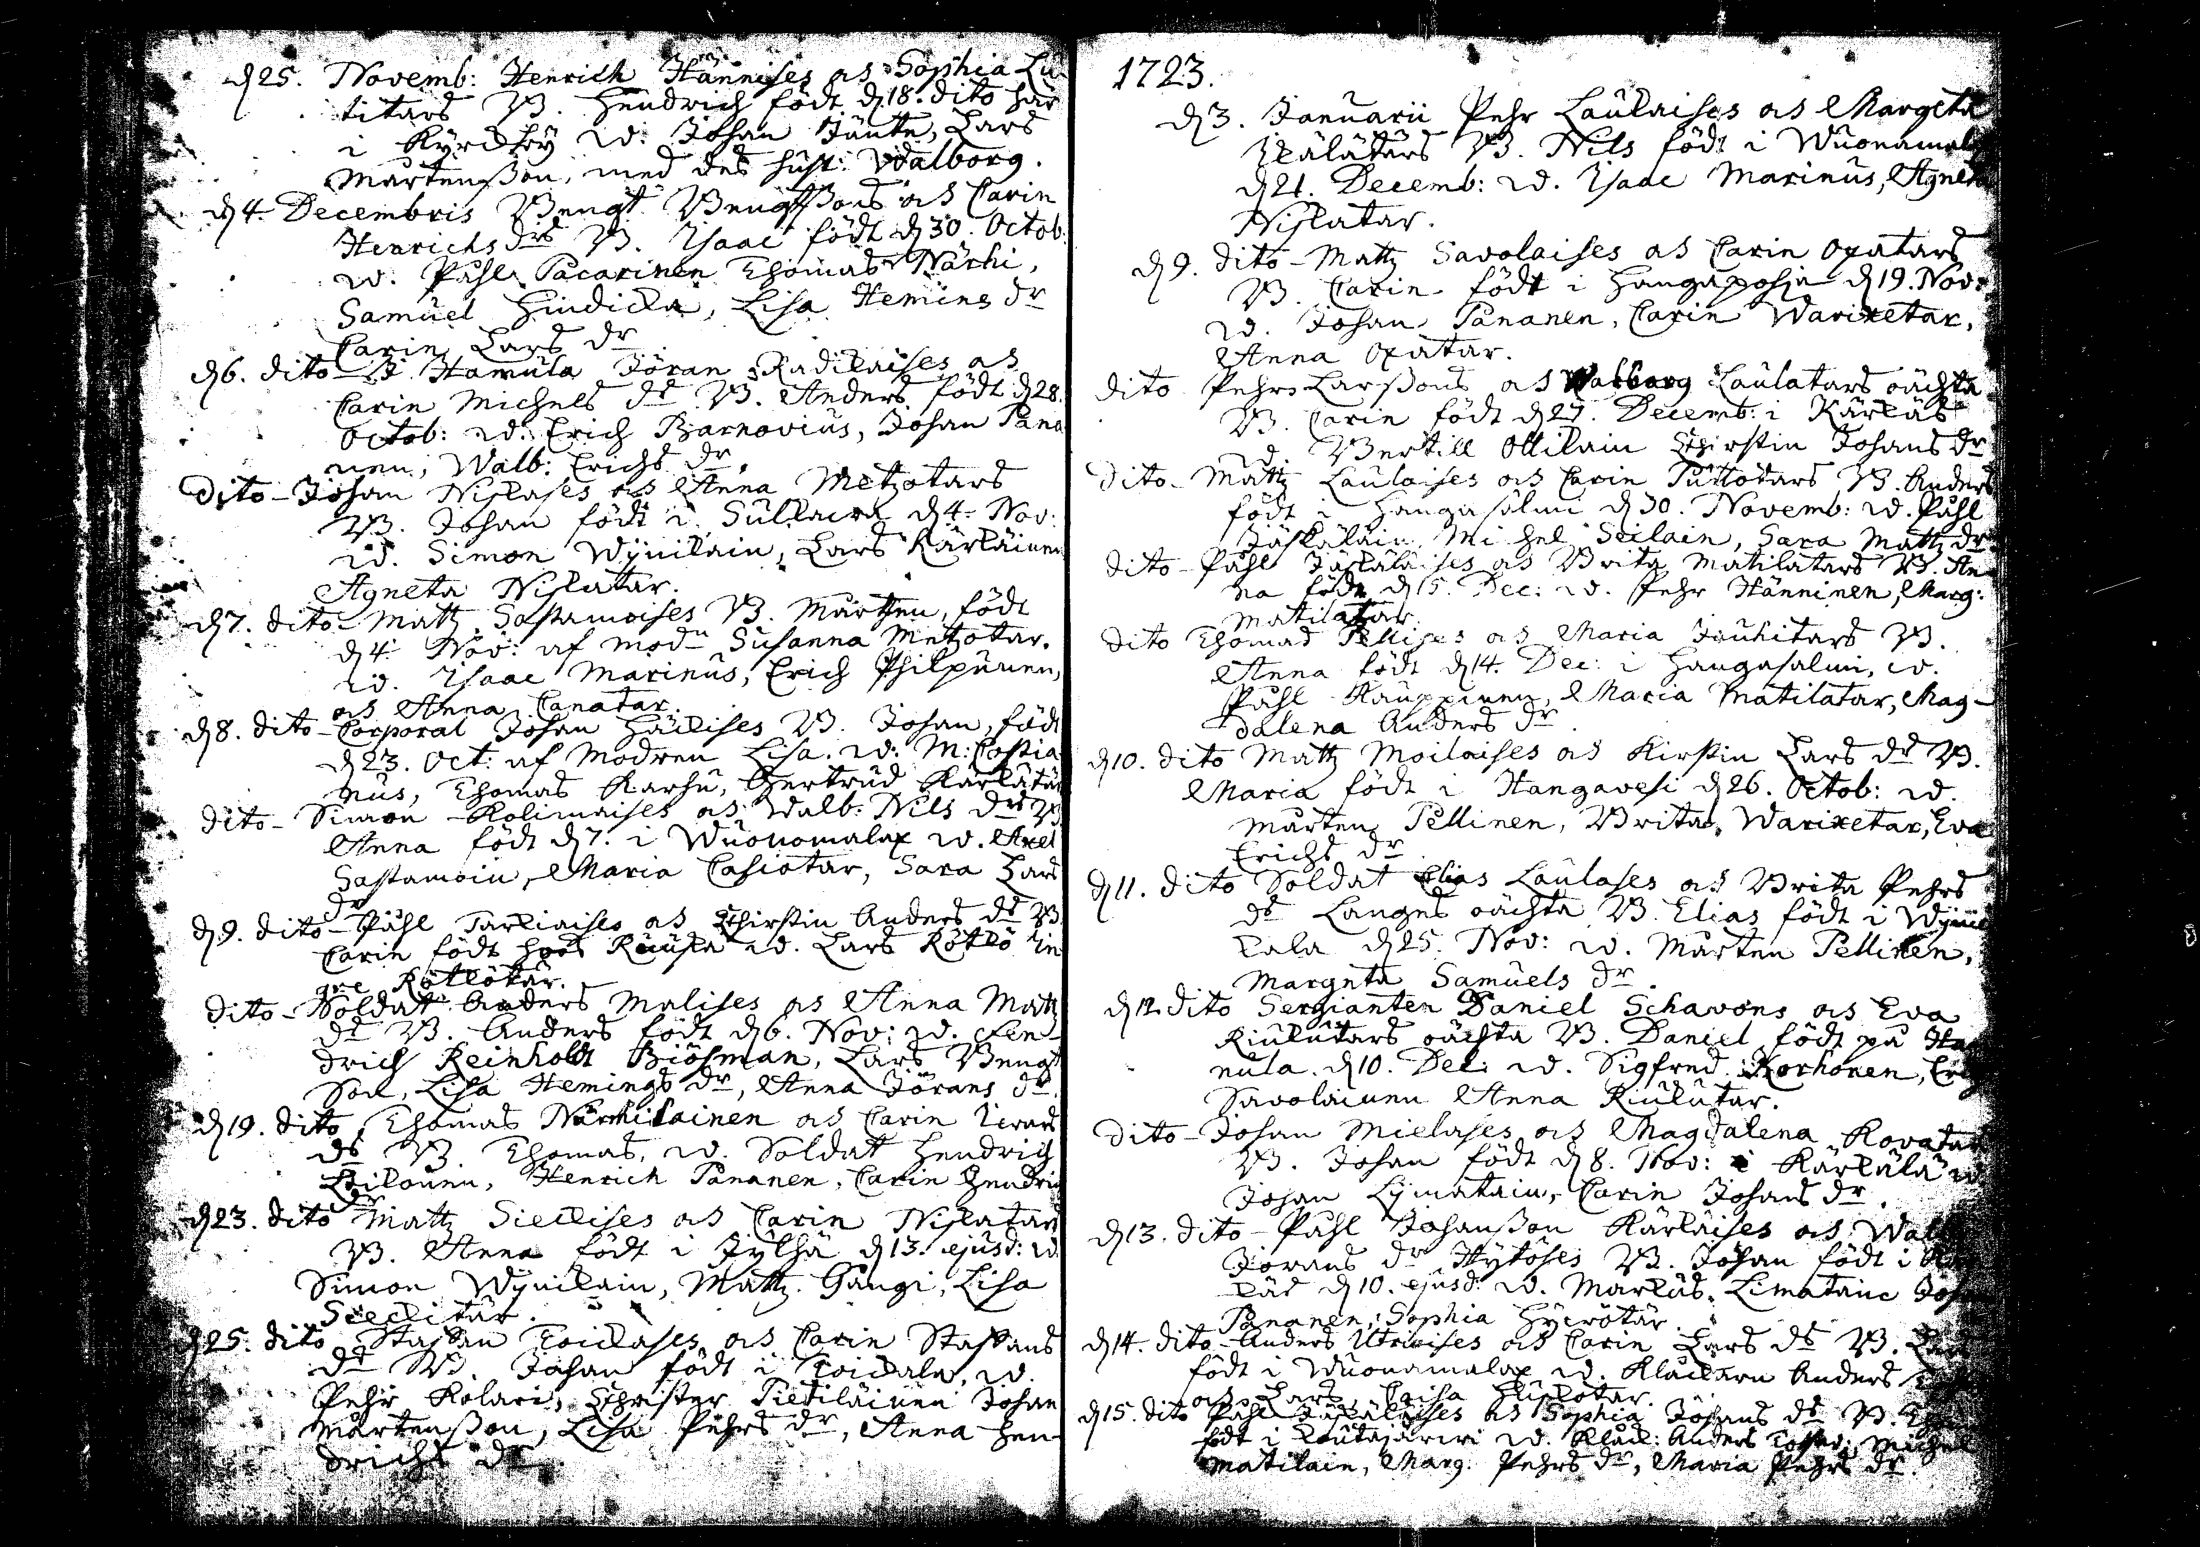 d 25. Novemb: Henrich Hännises as Sophia Lu-
titars B. Hendrich födt d 18. dito här
i Kyrdby w: Johan Jänte, Lars
Mårtenßon, med des hust: Walborg.
d 4. Decembris Bengt Bengtßons as Carin
Henrichs drs B. Isaac födt d 30. Octob.
w. Påhl Pacarinen Thomas Närhi,
Samuel Hindicka, Lisa Hemings dr
Carin Lars dr
d 6. dito Hamula Jöran Radikaises as
Carin Michels dr B. Anders födt d 28.
Octob: w. Erich Barnovius, Johan Pana
nen, Walb: Erichs dr
dito - Johan Niskases as Anna Metzotars
B. Johan födt i Sulkava d 4. Nov:
w. Simon Wynikain, Lars Kärkäinen
Agneta Niskatar.
d 7. dito Mattz Sastamoises B. Mårten, födt
d 4. Nov: af modn Susanna Metzotar.
w. Isaac Marinus, Erich Philpunen,
as Anna Canatar.
d 8. dito - Corporal Johan Häkises B. Johan, födt
d 23. Oct: af Modren Lisa. w. M: Costia
nus, Thomas Karhu, Gertrud Kärkätär
dito - Simon Kolimaises as Walb: Nils dr B
Anna födt d 7. i Wuonomalax w. Axel
Sastamoin, Maria Casiotar, Sara Lars
dr
d 9. dito - Påhl Tarkiaises as Chirstin Anders dr B
Carin födt hoos Ruuska w. Lars Rötkö In
gre Rötkötär.
dito - Soldat Anders Malises as Anna Mattz
dr B. Anders födt d 6. Nov: w. Fen-
drich Reinholdt Biöhman, Lars Bengt
Son, Lisa Hemings dr, Anna Jörans dr.
d 19. dito, Thomas Närhikainen as Carin Iwars
ds B. Thomas, w. Soldat Hendrich
Henrich Pananen, Carin Hendric
dr
d 23. dito Mattz Sieckises as Carin Niskatars
B. Anna födt i Jylhä d 13. ejusd: w.
Simon Wynikain, Mattz Gangi, Lisa
Sieckitär.
d 25. dito Staffan Toickases as Carin Staffans
dr B. Johan födt i Toickala, w.
Pehr Kolari, Christer Pietiläinen Johan
Mårtenßon, Lisa Pehrs dr, Anna Hen-
drichs dr
1723.
d 3. Januarii Pehr Laukaises as Margeta
B. Nils födt i Wuonamalax
d 21. Decemb: w. Isaac Marinus, Agneta
Niskatar.
d 9. dito - Mattz Savolaises as Carin Oxatars
B. Carin födt i Hangaposja d 19. Nov:
w. Johan Pananen, Carin Warixetar,
Anna Oxatar.
dito Pehr Larßons as Walborg Laukatars oächta
B. Carin födt d 27. Decemb: i Kärkäs
w. Bertill Ollikain Chirstin Johans dr
dito - Mattz Laukaises as Carin Puttotars B. Anders
födt i Hangasalmi d 30. Novemb: w. Påhl
Jäskäläin, Michel Seilain, Sara Mattz dr
dito - Påhl Jäskäläises as Brita Matilatars B. An
na födt d 15. Dec: w. Pehr Hänninen, Marg:
Matilatar.
dito Thomas Pellises as Maria Jauhitars B.
Anna födt d 14. Dec: i Hangasalmi, w.
Påhl Kauppinen, Maria Matilatar, Mag-
dalena Anders dr.
d 10. dito Mattz Moilaises as Kirstin Lars dr B.
Maria födt i Hangavesi d 26. Octob: w.
Mårten Pellinen, Brita Warixetar, Eva
Erichs dr
d 11. dito Soldat Elias Laukases as Brita Pehrs
dr Langes oächta B. Elias födt i
d 25. Nov: w. Mårten Pellinen,
Margeta Samuels dr.
d 12. dito Sergianten Daniel Schavons as Eva
Kiukutars oächta B. Daniel födt på Ha
nula. d 10. Dec: w. Sigfred Korhonen, Erich
Savolainen Anna Kiukutar.
dito - Johan Mielases as Magdalena Kovatar
B. Johan födt d 8. Nov: i Kärkälä w
Johan Lymatain, Carin Johans dr.
d 13. dito - Påhl Johanßon Kärkäises as Walb
Jörans dr Hytöses B. Johan födt i Kär
käs d 10. ejusd: w. Markus Limataine Johan
Pananen, Sophia Hycrötär.
d 14. dito - Anders Utriaises as Carin Lars dr B. Lars
födt i Wuonamalax w. Klåckarn Anders
as Lars, Caisa
d 15. dito Påhl Jäskäläises as Sophia Johans dr B.
födt i w. Klåck: Anders Michel
Matilain, Marg: Pehrs dr, Maria Pehrs dr.